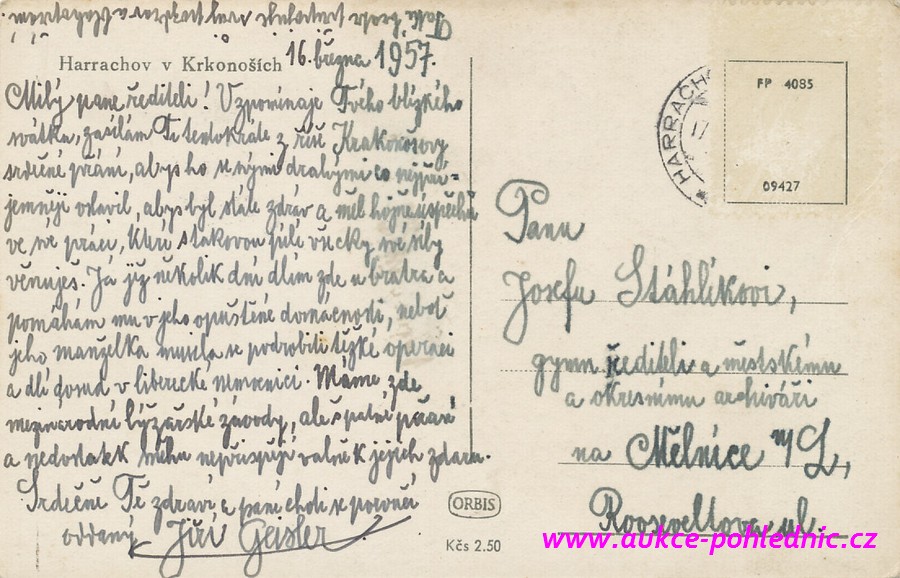 Harrachov v Krkonoších 16. března 1957.
Milý pane řediteli! Vzpomínaje Tvého blízkého
svátku, zasílám Ti tentokráte z říše Krakonošovy
srdečné přání, abys ho s svými drahými co nejpří-
jemněji oslavil, abys byl stále zdráv a měl hojně úspěchů
ve své práci, které s takovou pílí všecky své síly
věnuješ. Já již několik dní dlím zde u bratra a
pomáhám mu v jeho opuštěné domácnosti, neboť
jeho manželka musela se podrobiti těžké operaci
a dlí dosud v liberecké nemocnici. Máme zde
mezinárodní lyžařské závody, ale špatné počasí
a nedostatek sněhu nepřispějí valně k jejich zdaru.
Srdečně Tě zdraví a paní choti se poroučí
oddaný Jiří Geisler
HARRACHO
17
FP 4085
09427
Panu
Josefu Stáhlíkovi,
gymn. řediteli a městskému
a okresnímu archiváři
na Mělníce n/L,
Rooseveltova ul.
ORBIS
Kčs 2.50
www.aukce-pohlednic.cz